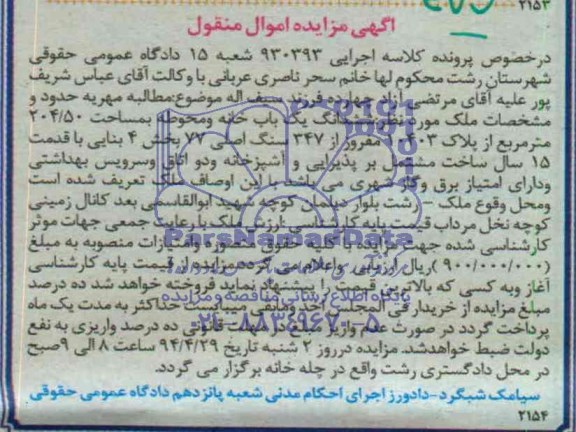 ۲۱۵۳
آگهی مزایده اموال منقول
درخصوص پرونده کلاسه اجرایی ۹۳۰۳۹۳ شعبه ۱۵ دادگاه عمومی حقوقی
شهرستان رشت محکوم لها خانم سحر ناصری عربانی با وکالت آقای عباس شریف
پور علیه آقای مرتضی چهارده فرزند سیف اله موضوع:مطالبه مهریه حدود و
مشخصات ملک مورد نظر:ششدانگ یک باب خانه ومحوطه بمساحت ۲۰۴/۵۰
مترمربع از پلاک مفروز از ۳۴۷ سنگ اصلی ۷۷ بخش ۴ بنایی با قدمت
۱۵ سال ساخت مشتمل بر پذیرایی و آشپزخانه ودو اتاق وسرویس بهداشتی
ودارای امتیاز برق وگاز شهری می باشد با این اوصاف ملک تعریف شده است
ومحل وقوع ملک – رشت بلوار دیلمان کوچه شهید ابوالقاسمی بعد کانال زمینی
کوچه نخل مرداب قیمت پایه کارشناسی :ارزش ملک با رعایت جمیع جهات موثر
کارشناسی شده جهت مزایده با کلیه حقوق متصوره وامتیازات منصوبه به مبلغ
(۹۰۰/۰۰۰/۰۰۰)ریال ارزیابی واعلام می گردد.مزایده از قیمت پایه کارشناسی
آغاز وبه کسی که بالاترین قیمت را پیشنهاد نماید فروخته خواهد شد ده درصد
مبلغ مزایده از خریدار فی المجلس اخذ ومابقی میبایست حداکثر به مدت یک ماه
پرداخت گردد در صورت عدم واریز مبلغ در مهلت قانونی ده درصد واریزی به نفع
دولت ضبط خواهدشد. مزایده درروز ۲ شنبه تاریخ ۹۴/۴/۲۹ ساعت ۸ الی ۹صبح
در محل دادگستری رشت واقع در چله خانه برگزار می گردد.
سیامک شبگرد-دادورز اجرای احکام مدنی شعبه پانزدهم دادگاه عمومی حقوقی
۲۱۵۴
ParsNamadData
پایگاه اطلاع رسانی مناقصه و مزایده
۰۲۱-۸۸۳۴۹۶۷۰-۵